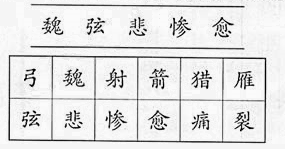 魏 弦 悲 惨 愈
弓 魏 射 箭 猎 雁
弦 悲 惨 愈 痛 裂